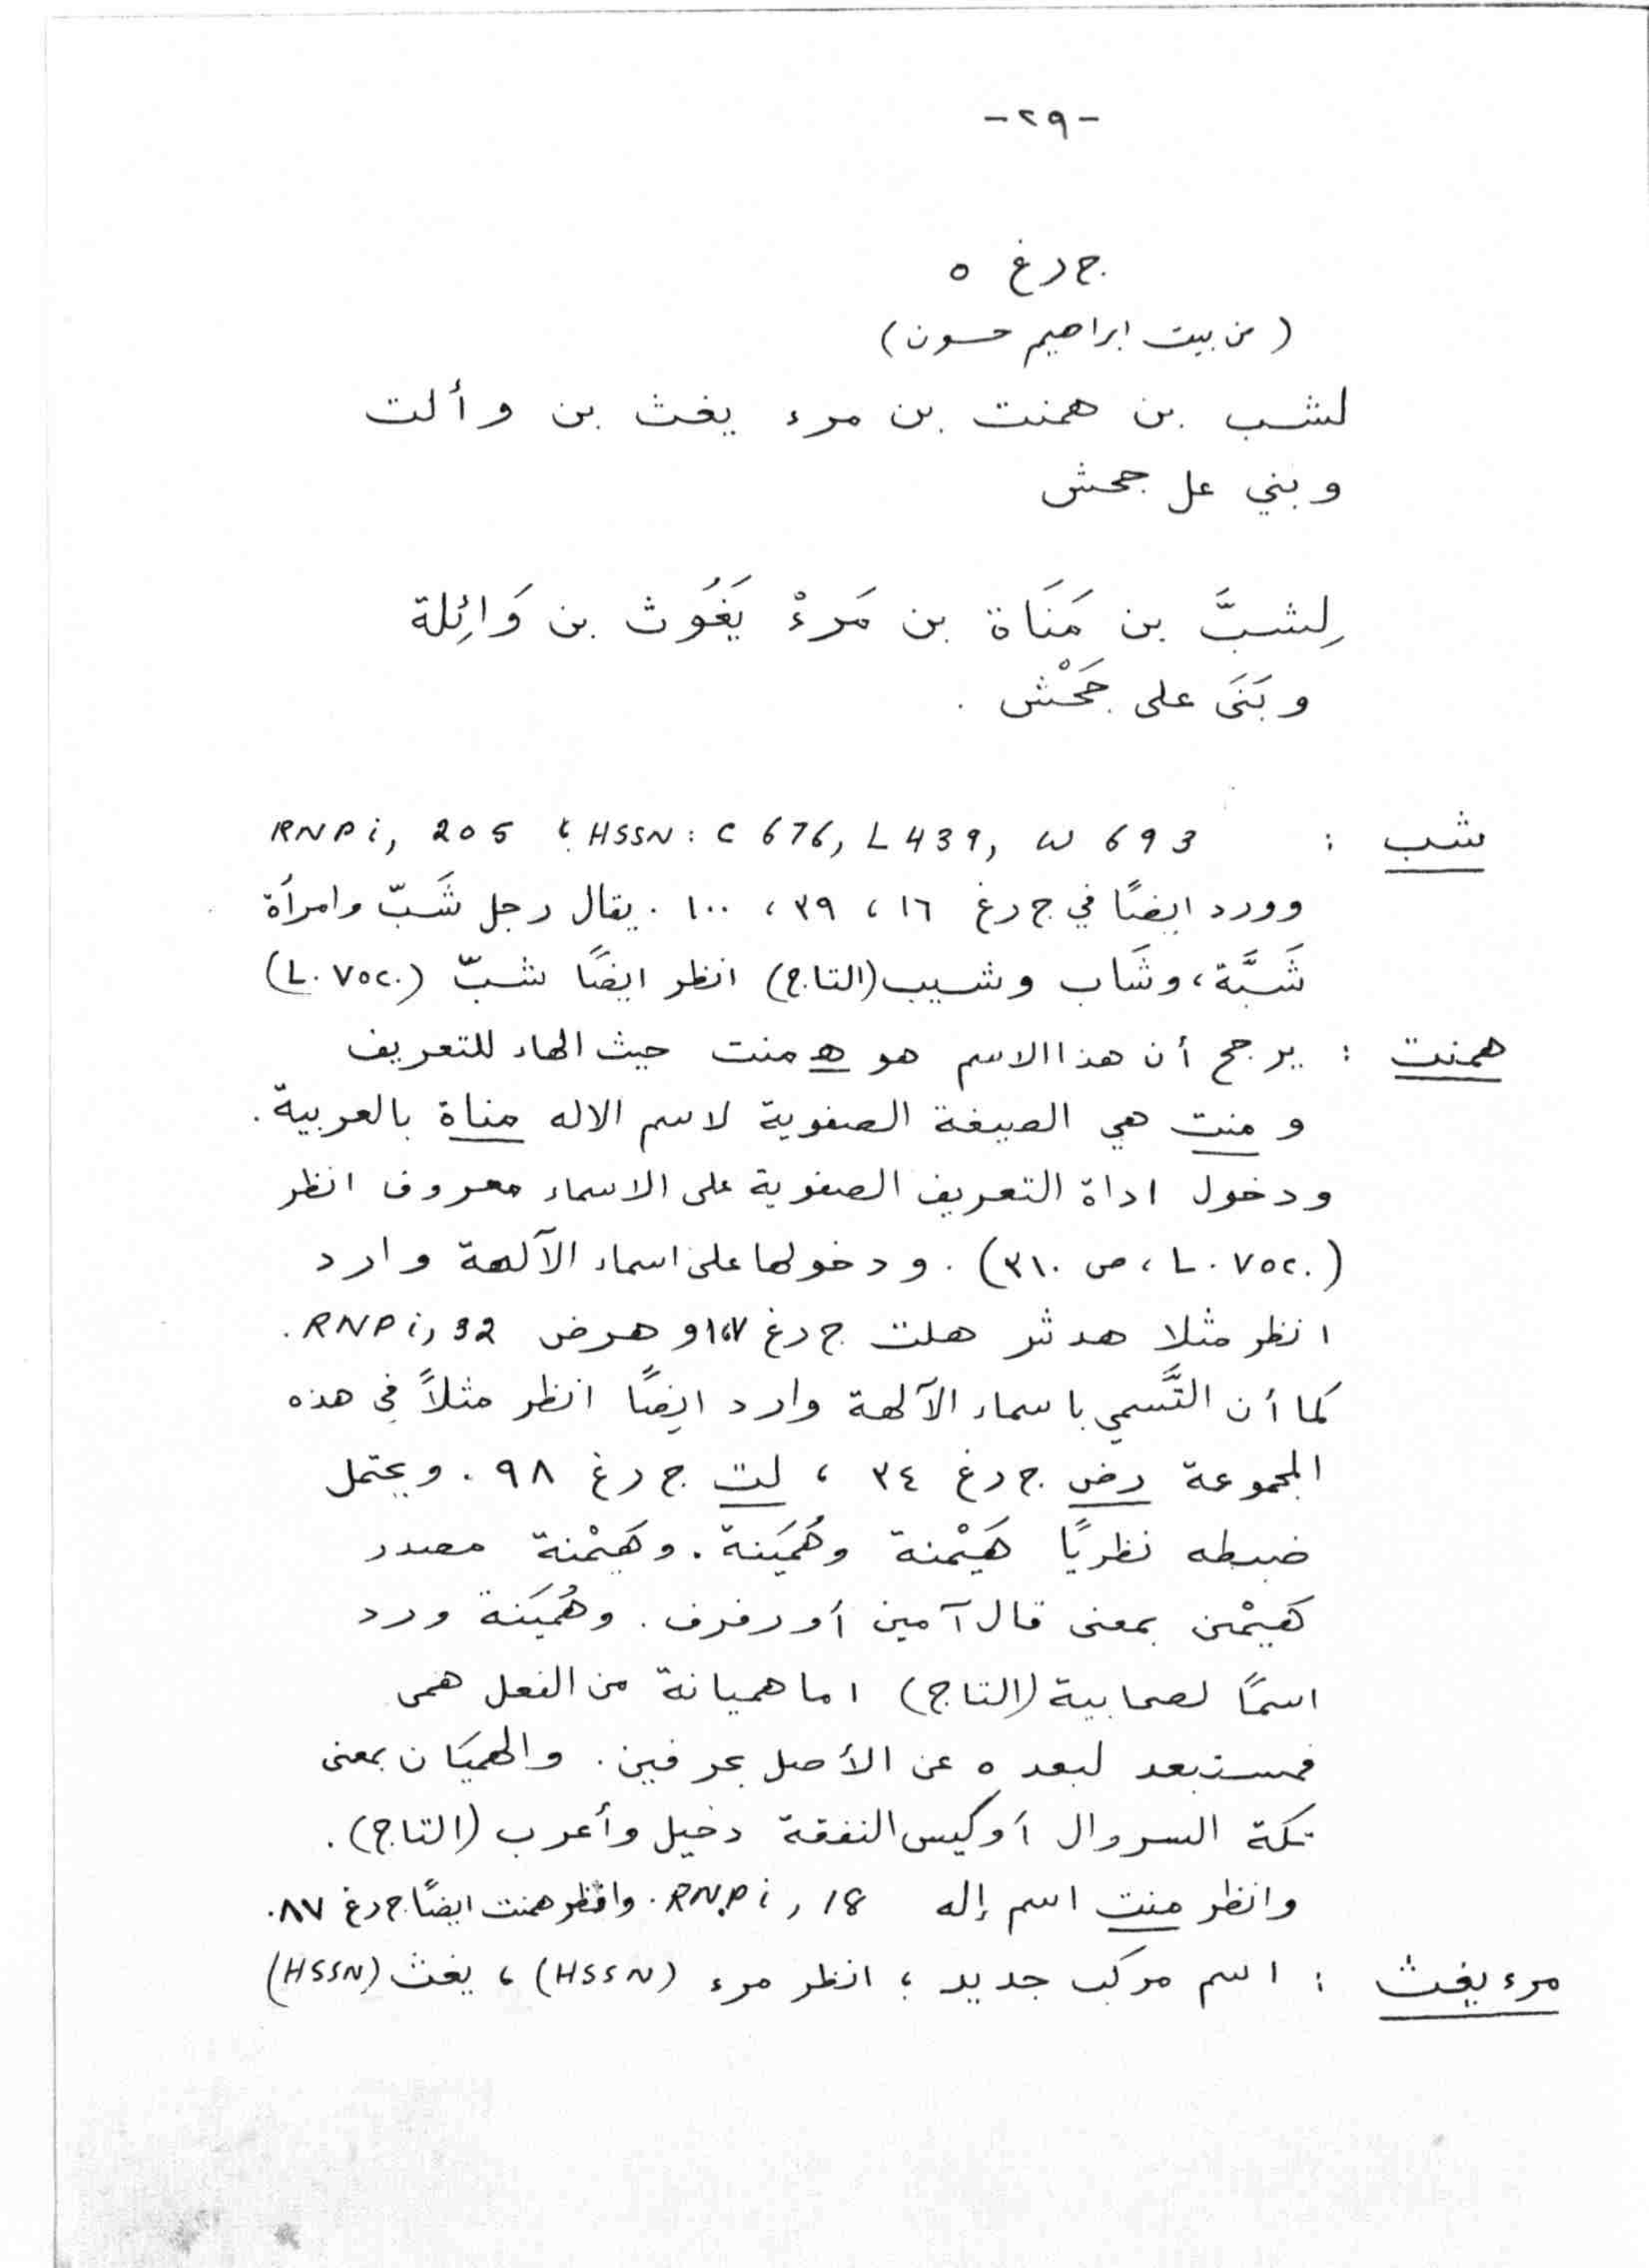 -٢٩-
ج رغ ٥
(من بيت ابراهيم حسون)
لشب بن همنت بن مرء يغث بن وألت
وبني عل جحش
لِشبَّ بن مَنَاة بن مَرءْ يَغُوث بن وَائِلة
وبَنَى على جَحْش .
شب : RNP i, 205 ؛ HSSN: C 676, L 439, W 693
وورد ايضًا في ج رغ ١٦ ، ٣٩ ، ١٠٠ . يقال رجل شَبّ وامرأة
شَبَّة، وشَاب وشيب (التاج) انظر ايضًا شبّ (L. Voc.)
همنت : يرجح أن هذا الاسم هو ه منت حيث الهاء للتعريف
و منت هي الصيغة الصفوية لاسم الاله مناة بالعربية .
ودخول اداة التعريف الصفوية على الاسماء معروف انظر
(L. Voc. ، ص ٣١٠) . ودخولها على اسماء الآلهة وارد
انظر مثلا هدثر هلت ج رغ وهرض RNP i, 32 .
كما أن التَّسمي باسماء الآلهة وارد ايضًا انظر مثلاً في هذه
المجموعة رض ج رغ ٣٤ ، لت ج رغ ٩٨ . ويحتمل
ضبطه نظريًا هَيْمنة وهُمَينة . وهَيْمنة مصدر
هَيْمن بمعنى قال آمين أو رفرف . وهُمَينة ورد
اسمًا لصحابية (التاج) اما هميانة من الفعل همى
فمستبعد لبعده عن الأصل بحرفين . والهميَان بمعنى
تكة السروال أو كيس النفقة دخيل وأعرب (التاج) .
وانظر منت اسم إله RNP i, 18 . وانظر همنت ايضًا ج رغ ٨٧ .
مرء يغث : اسم مركب جديد ؛ انظر مرء (HSSN) ، يغث (HSSN)